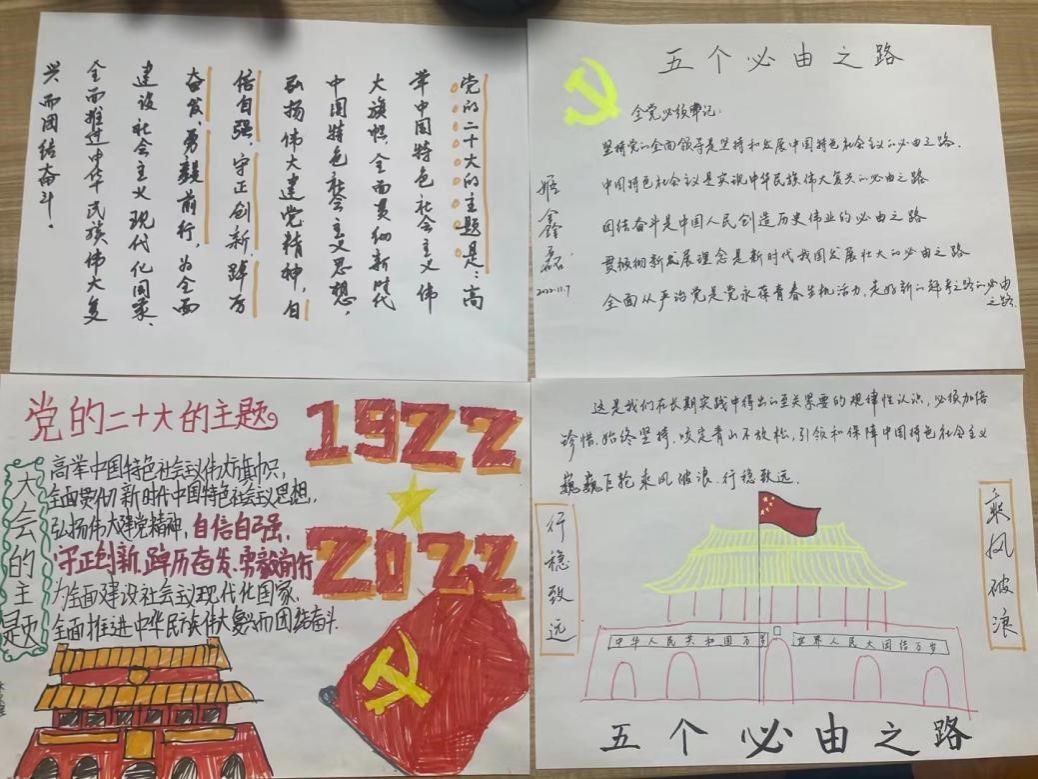 党的二十大的主题是：高
举中国特色社会主义伟
大旗帜，全面贯彻新时代
中国特色社会主义思想，
弘扬伟大建党精神，自
信自强、守正创新、踔厉
奋发、勇毅前行，为全面
建设社会主义现代化国家、
全面推进中华民族伟大复
兴而团结奋斗.
五个必由之路
全党必须牢记:
坚持党的全面领导是坚持和发展中国特色社会主义的必由之路.
中国特色社会主义是实现中华民族伟大复兴的必由之路
团结奋斗是中国人民创造历史伟业的必由之路
贯彻新发展理念是新时代我国发展壮大的必由之路
全面从严治党是党永葆青春生机活力、走好新的赶考之路的必由
之路.
姬鑫磊
2022.11.7
党的二十大的主题
1922
2022
大会的主题
高举中国特色社会主义伟大旗帜，
全面贯彻新时代中国特色社会主义思想，
弘扬伟大建党精神，自信自强、
守正创新、踔厉奋发、勇毅前行
为全面建设社会主义现代化国家、
全面推进中华民族伟大复兴而团结奋斗.
这是我们在长期实践中得出的至关紧要的规律性认识，必须加倍
珍惜、始终坚持，咬定青山不放松，引领和保障中国特色社会主义
巍巍巨轮乘风破浪、行稳致远
行稳致远
乘风破浪
中华人民共和国万岁
世界人民大团结万岁
五个必由之路